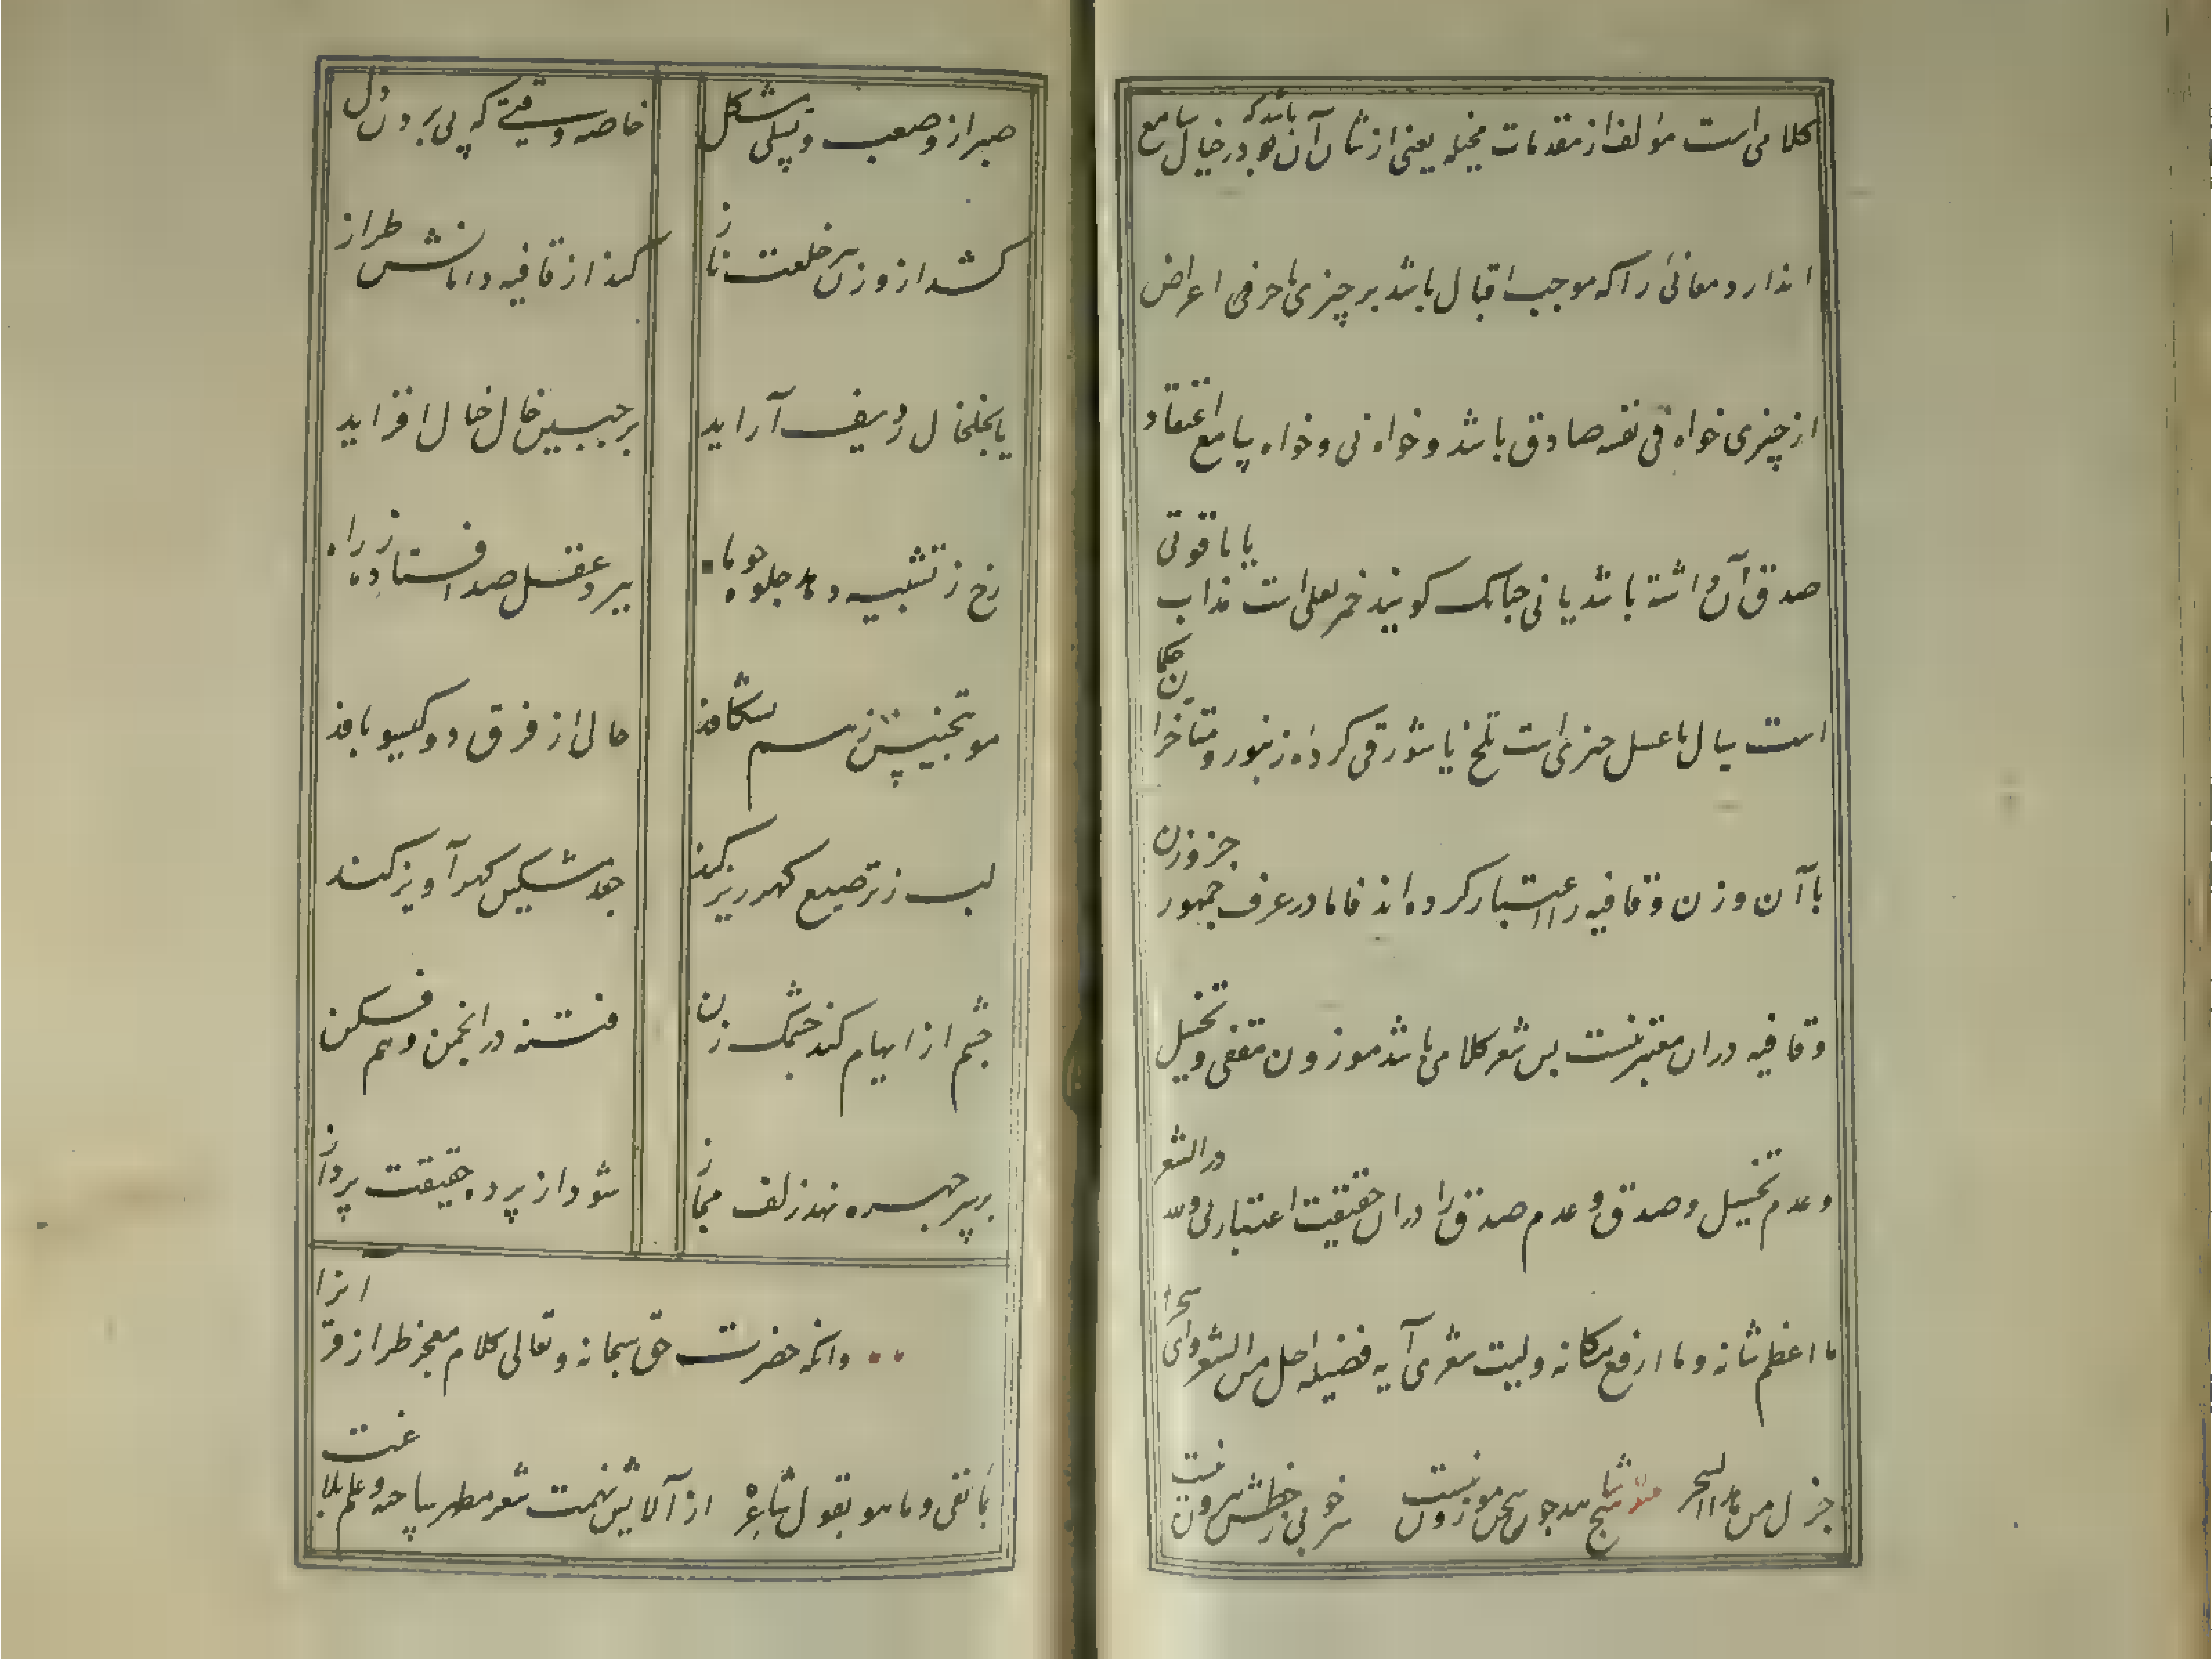 کلامی است مؤلف از مقدمات مخیله یعنی از شان آن باشد که در خیال سامع
اندازد معانی را که موجب اقبال باشد بر چیزی یا حرفی اعراض
از چیزی خواه فی نفسه صادق باشد و خواه نی و خواه سامع اعتقاد
صدق آن داشته باشد یا نی چنانک گویند خمر لعلی است مذاب یا یاقوتی
است سیال یا عسل چیزی است تلخ یا شور قی کرده زنبور و متاخران حکما
با آن وزن و قافیه را اعتبار کرده اند فاما در عرف جمهور جز وزن
و قافیه در ان معتبر نیست پس شعر کلامی باشد موزون مقفی و تخیل
و عدم تخییل و صدق و عدم صدق را در ان حقیقت اعتبار نی و لله در الشعر
ما اعظم شانه و ما ارفع مکانه و لیت شعری آیه فضیله اجل من الشعر و ای سحر
جزل من هذا السحر مثنوی شاهد سنج چون سخن موزون نیست سر خوبی ز خطش بیرون نیست
صبر ازو صعب و تسلی مشکل
خاصه وقتی که پی بردن دل
کشد از وزن ببر خلعت ناز
کند از قافیه دامانش طراز
پا بخلخال ردیف آراید
بر جبین خال خیال افزاید
رخ ز تشبیه دهد جلوه چو ماه
ببرد عقل صد افتاده ز راه
مو بتجنیس ز هم بشکافد
خالی از فرق دو گیسو بافد
لب ز ترصیع گهر ریز کند
جعد مشکین گهر آویز کند
چشم از ایهام کند چشمک زن
فتنه در انجمن وهم فکن
بر سر چهره نهد زلف مجاز
شود از پرده حقیقت پرداز
و انکه حضرت حق سبحانه و تعالی کلام معجز طراز قرانرا
بنا نفی و ما هو بقول شاعر از آلایش تهمت شعر مطهر ساخته و علم بلاغت